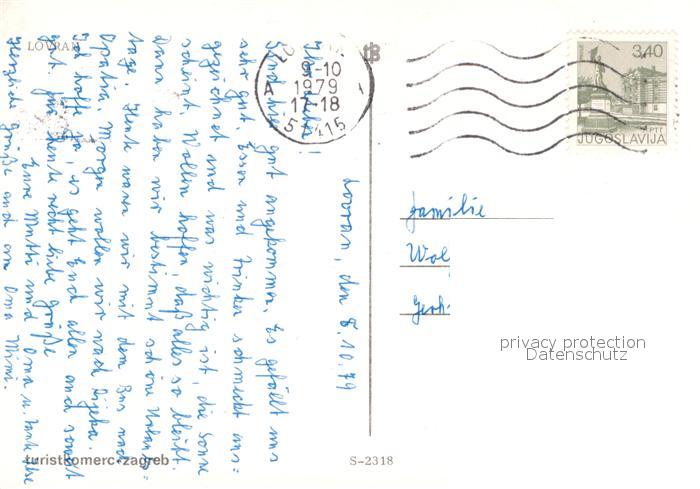 LOVRAN
Lovran, den 8.10.79
Ihr Lieben!
Sind hier gut angekommen. Es gefällt uns
sehr gut. Essen und Trinken schmeckt aus=
gezeichnet und was wichtig ist, die Sonne
scheint. Wollen hoffen, daß alles so bleibt.
Dann haben wir bestimmt schöne Urlaubs=
tage. Heute waren wir mit dem Bus nach
Opatia. Morgen wollen wir nach Rijeka.
Ich hoffe ja, es geht Euch allen auch soweit
gut. Für heute recht liebe Grüße
Eure Mutti und Oma u. Tante Ilse
Herzliche Grüße auch von Oma Mimi.
turistkomerc-zagreb
S-2318
9-10
1979
17-18
A
5 115
3,40
PTT
JUGOSLAVIJA
Familie
Wol
Gerh.
privacy protection
Datenschutz